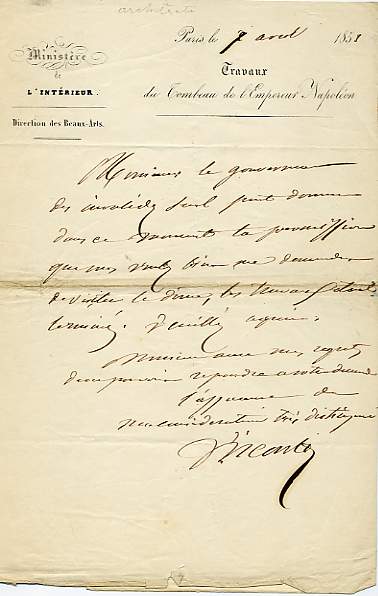 architecte
Ministère
de
L'INTÉRIEUR.
Direction des Beaux-Arts.
Paris le 7 avril 1851
Travaux
du Tombeau de l'Empereur Napoléon
Monsieur le gouverneur
des invalides seul peut donner
dans ce moment la permission
que vous voulez bien me demander
de visiter le dôme, les travaux étant
terminés. Veuillez agréer,
Monsieur avec mes regrets
de ne pouvoir repondre a votre demande
l'assurance de
ma consideration très distinguée
Visconti